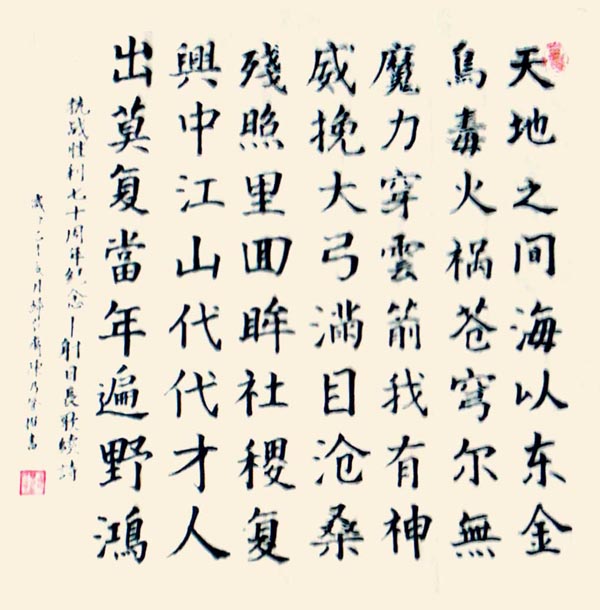 天地之间海以东金
烏毒火祸苍穹尔無
魔力穿雲箭我有神
威挽大弓满目沧桑
殘照里囬眸社稷复
興中江山代代才人
出莫复當年遍野鴻
抗战胜利七十周年纪念—射日長歌续诗